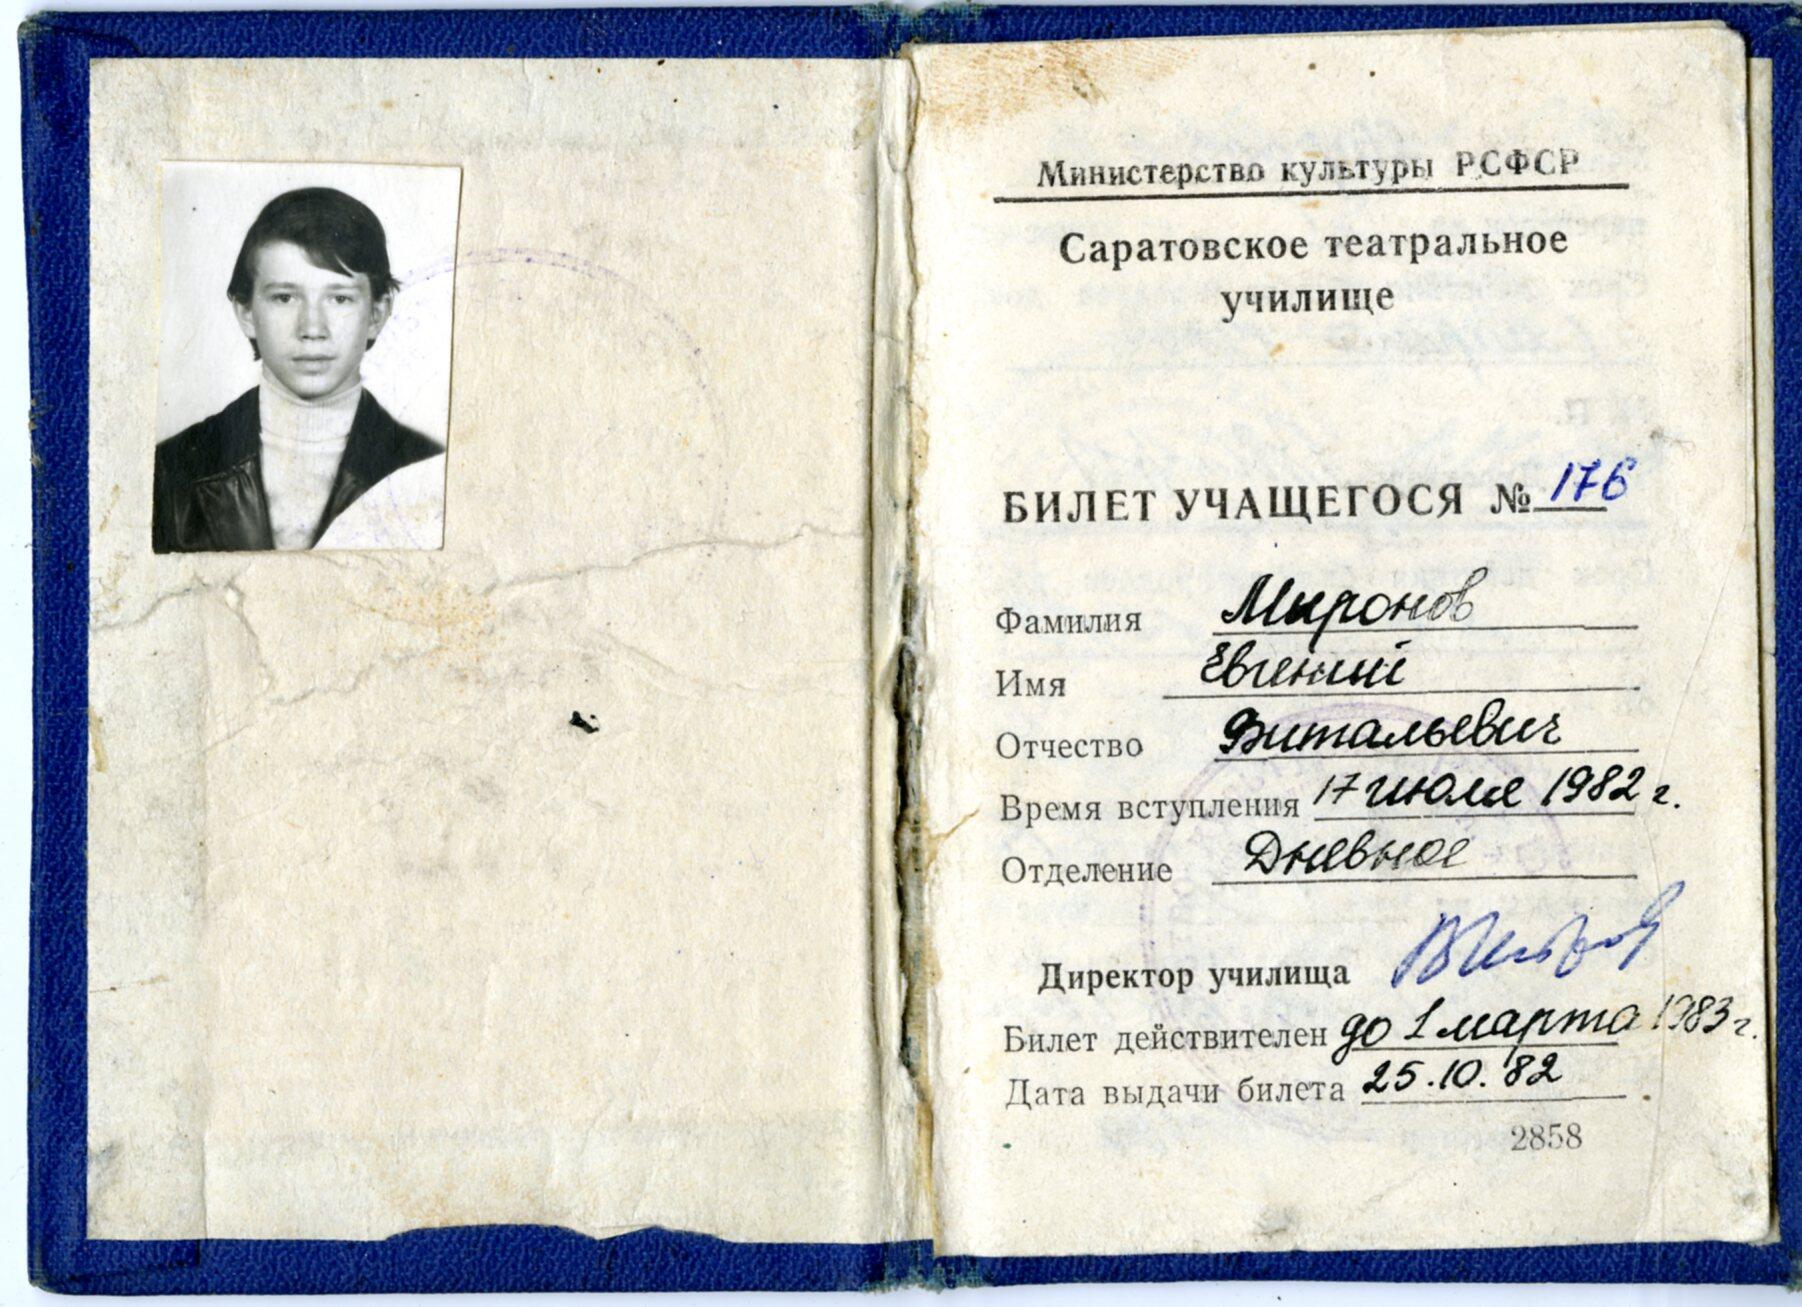 Министерство культуры РСФСР
Саратовское театральное
училище
БИЛЕТ УЧАЩЕГОСЯ № 176
Фамилия Миронов
Имя Евгений
Отчество Витальевич
Время вступления 17 июля 1982 г.
Отделение Дневное
Директор училища
Билет действителен до 1 марта 1983 г.
Дата выдачи билета 25.10.82
2858